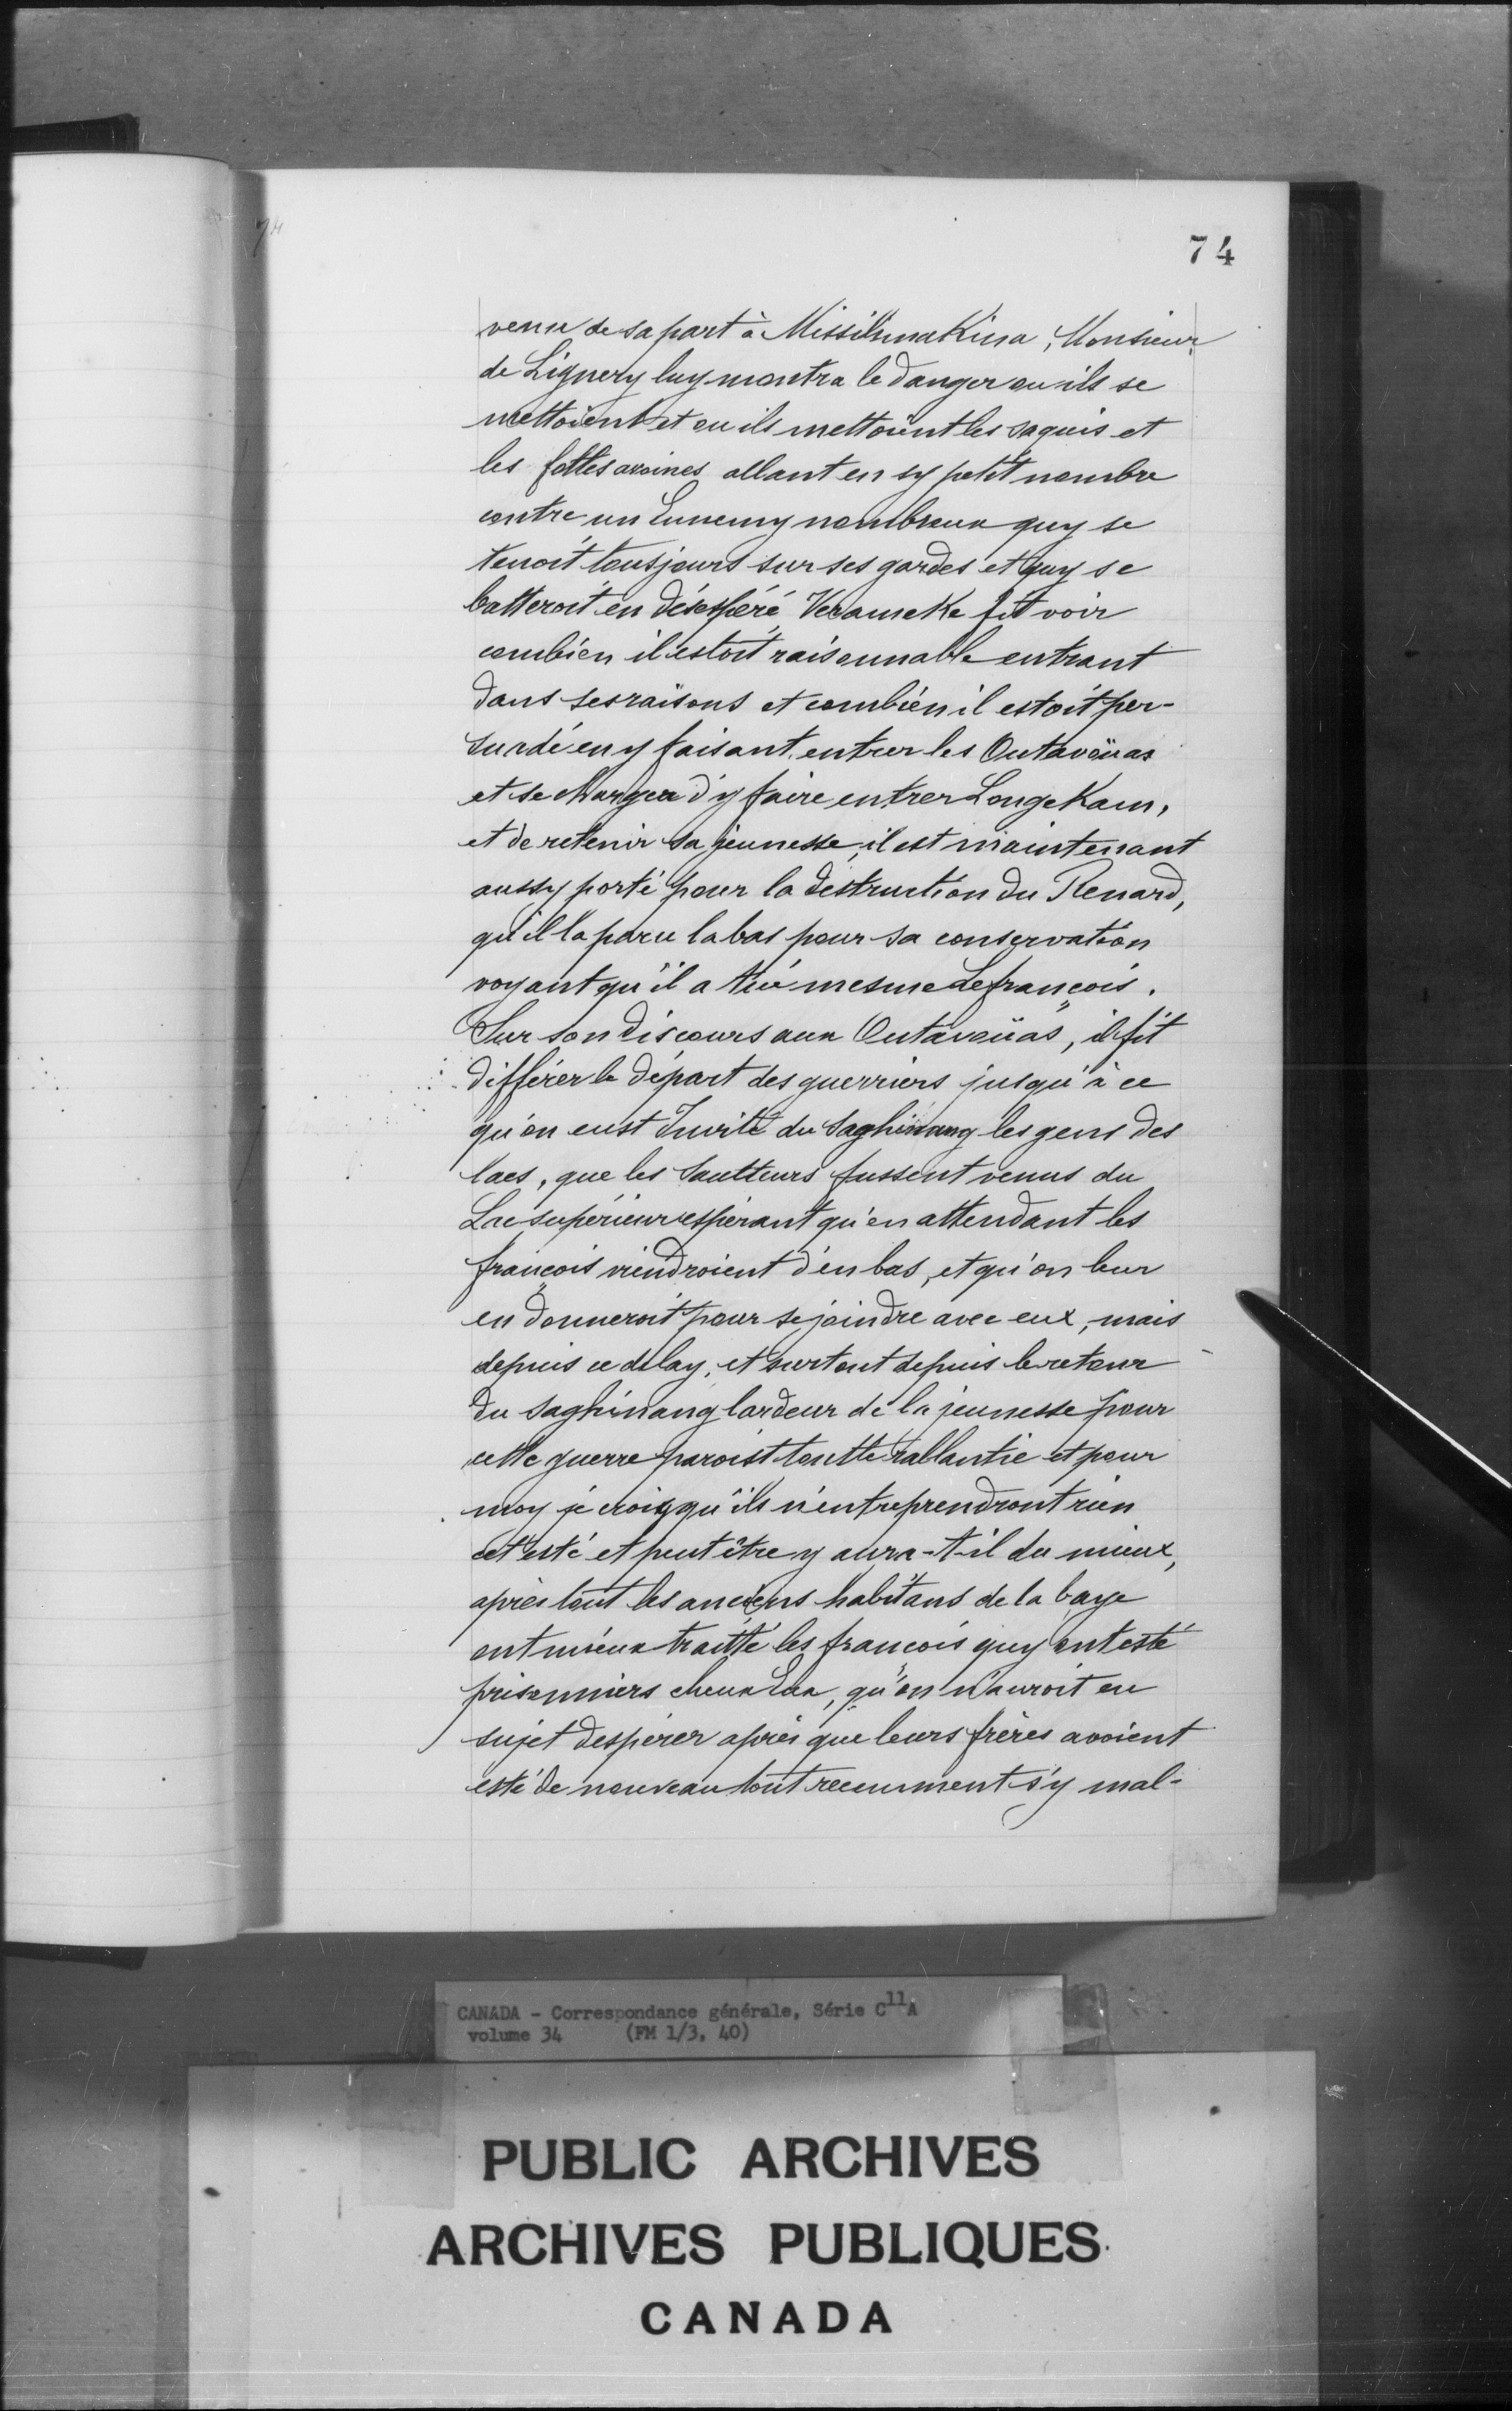 74
venu de sa part à MissilimaKina, Monsieur
de Lignery luy montra le danger ou ils se
mettoient et ou ils mettoient les saquis et
les folles avoines allant en sy petit nombre
contre un Ennemy nombreux quy se
tenoit tousjours sur ses gardes et quy se
batteroit en désespéré, KoraumeKe fit voir
combien il estoit raisonnable entrant
dans ses raisons et combien il estoit per-
suadé en y faisant entrer les Outavoüas
et se chargea d'y faire entrer LongeKam,
et de retenir sa jeunesse, il est maintenant
aussy porté pour la destruction du Renard,
qu'il la paru la bas pour sa conservation
voyant qu'il a tué mesme le françois.
Sur son discours aux Outavoüas, il fit
différer le départ des guerriers jusqu'à ce
qu'on eust Invité du Saghinang les gens des
lacs, que les Saulteurs fussent venus du
Lac supérieur espérant qu'en attendant les
françois viendroient d'en bas, et qu'on leur
en donneroit pour se joindre avec eux, mais
depuis ce delay, et surtout depuis le retour
du Saghinang lardeur de la jeunesse pour
cette guerre paroist toutte rallantie et pour
moy je crois qu'ils n'entreprendront rien
cet esté et peut être y aura-t-il du mieux,
après tout les anciens habitans de la baye
ont mieux traitté les françois quy ont esté
prisonniers cheux Eux, qu'on n'auroit eu
sujet despérer après que leurs frères avoient
esté de nouveau tout recemment s'y mal-
CANADA - Correspondance générale, Série C11A
volume 34 (FM 1/3, 40)
PUBLIC ARCHIVES
ARCHIVES PUBLIQUES
CANADA